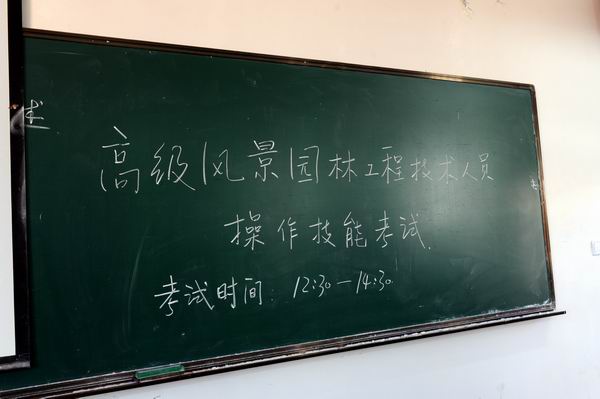 术
高级风景园林工程技术人员
操作技能考试
考试时间: 12:30—14:30